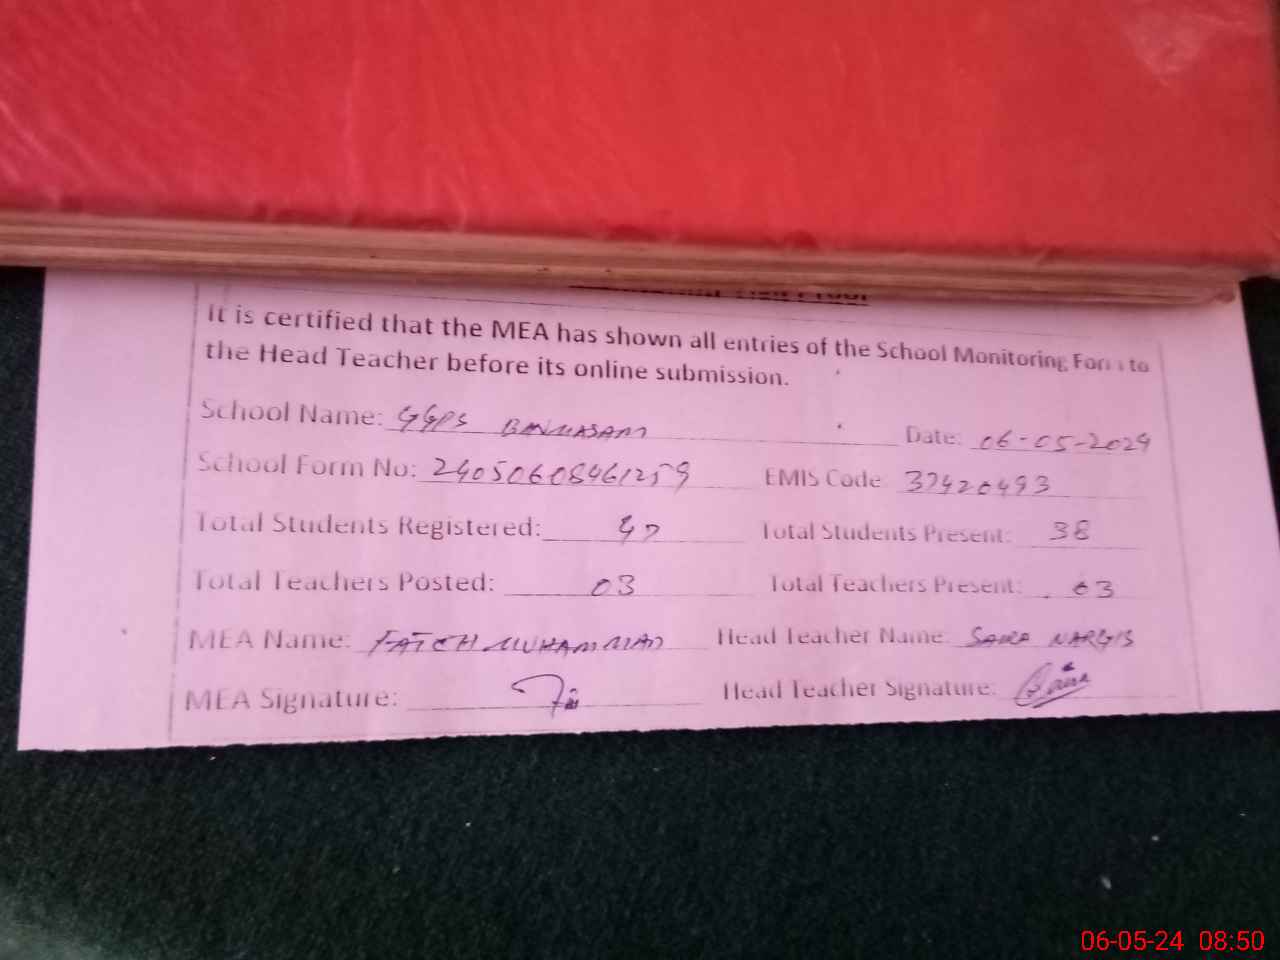 It is certified that the MEA has shown all entries of the School Monitoring Form to
the Head Teacher before its online submission.
School Name: GGPS Date: 06-05-2024
School Form No: 24050608461259 EMIS Code: 37420493
Total Students Registered: 47 Total Students Present: 38
Total Teachers Posted: 03 Total Teachers Present: 03
MEA Name: FATEH MUHAMMAD Head Teacher Name: SAIRA NARGIS
MEA Signature: Head Teacher Signature: Saira
06-05-24 08:50